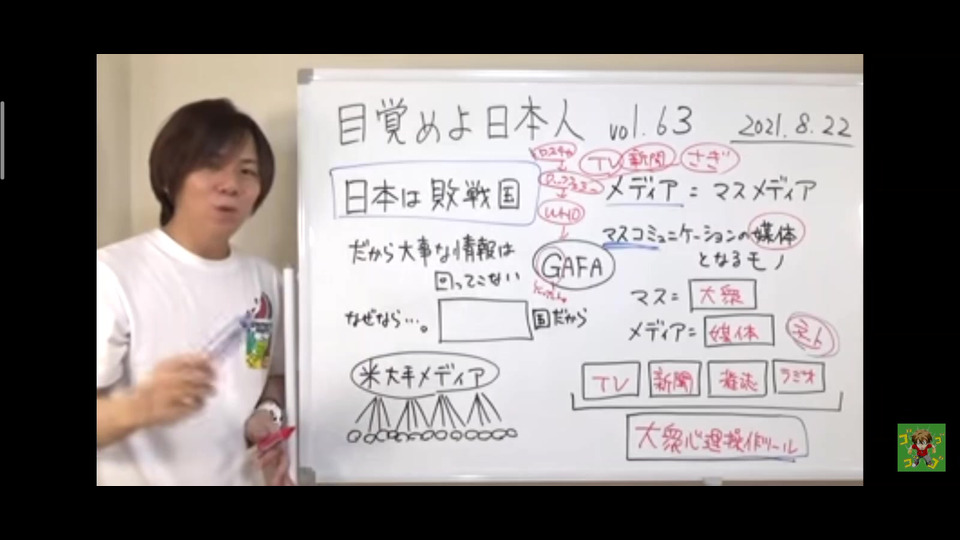 目覚めよ日本人 vol.63 2021.8.22
日本は敗戦国
だから大事な情報は
回ってこない
なぜなら…。
国だから
米大手メディア
ロスチャ
WHO
GAFA
TV 新聞 さぎ
メディア=マスメディア
マスコミュニケーションの媒体
となるモノ
マス=大衆
メディア=媒体
TV 新聞 雑誌 ラジオ
大衆心理操作ツール
ゴゴ
ゴゴ